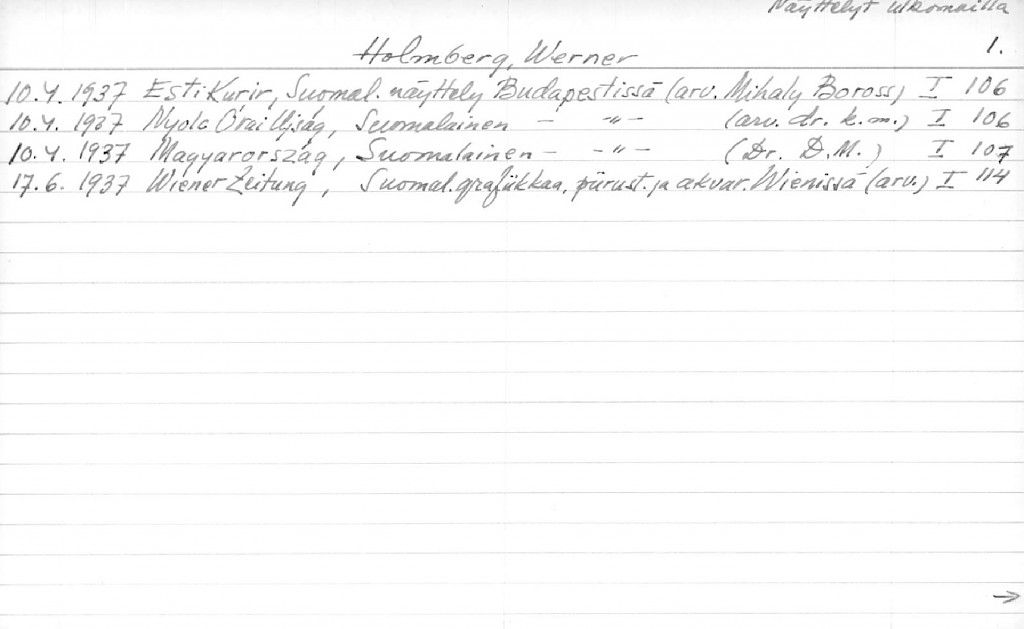 Näyttelyt ulkomailla
1.
Holmberg, Werner
10.4.1937 Esti Kurir, Suomal. näyttely Budapestissä (arv. Mihaly Boross) I 106
10.4.1937 Nyolc Orai Ujság, Suomalainen - -"- (arv. dr. k.m.) I 106
10.4.1937 Magyarország, Suomalainen - -"- (Dr. D.M.) I 107
17.6.1937 Wiener Zeitung, Suomal. grafiikkaa, piirust. ja akvar. Wienissä (arv.) I 114
→